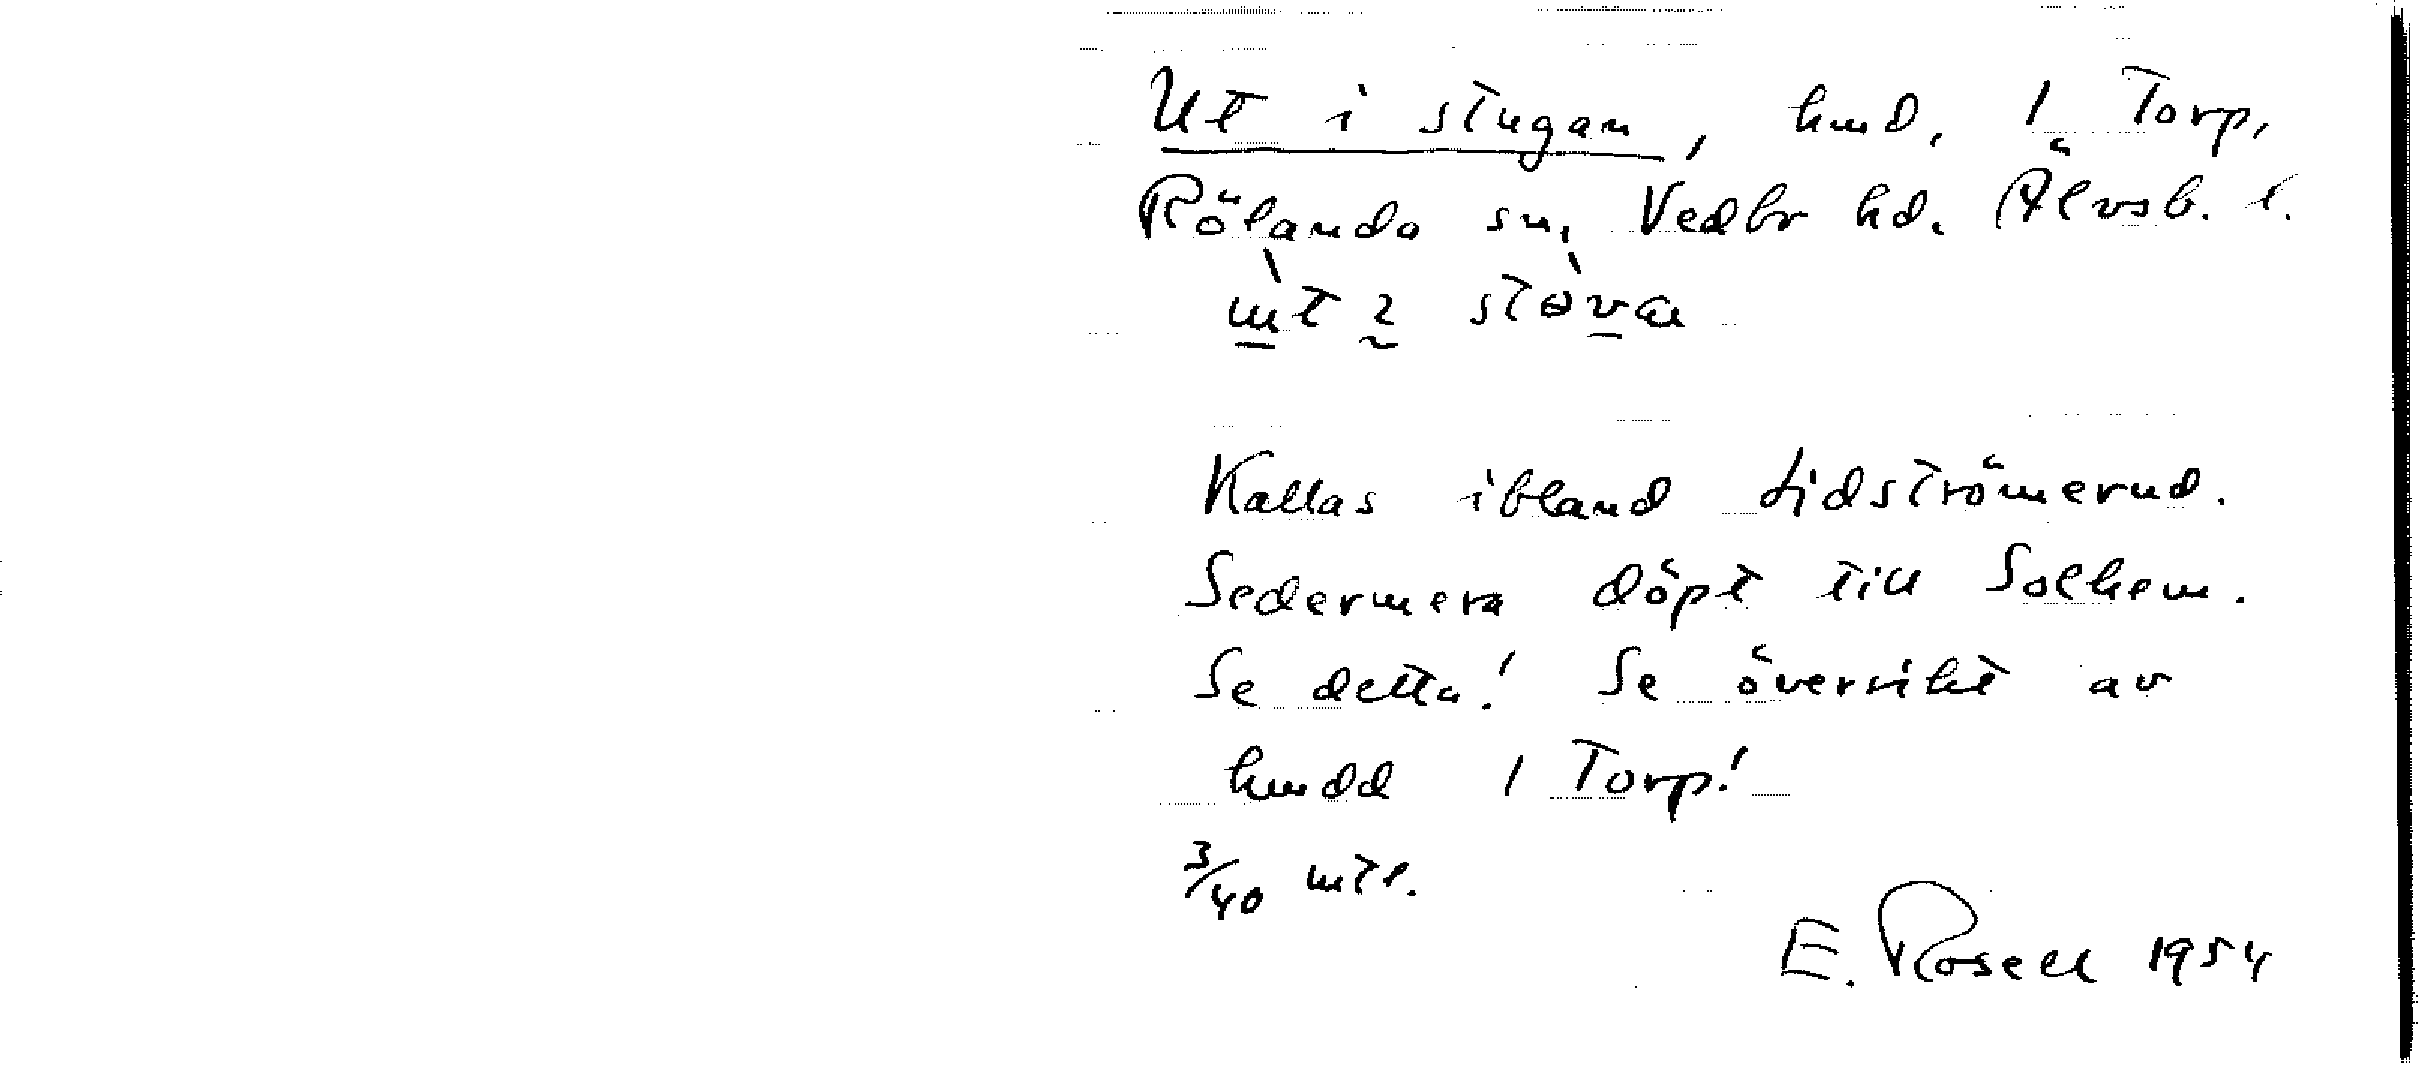 Ut i stugan, hmd. 1 Torp,
Rölanda sn, Vedbo hd. Älvsb. l.
Kallas ibland Lidströmerud.
Sedermera döpt till Solhem.
Se detta! Se översikt av
hmdd 1 Torp!
3/40 mtl.
E. Rosell 1954